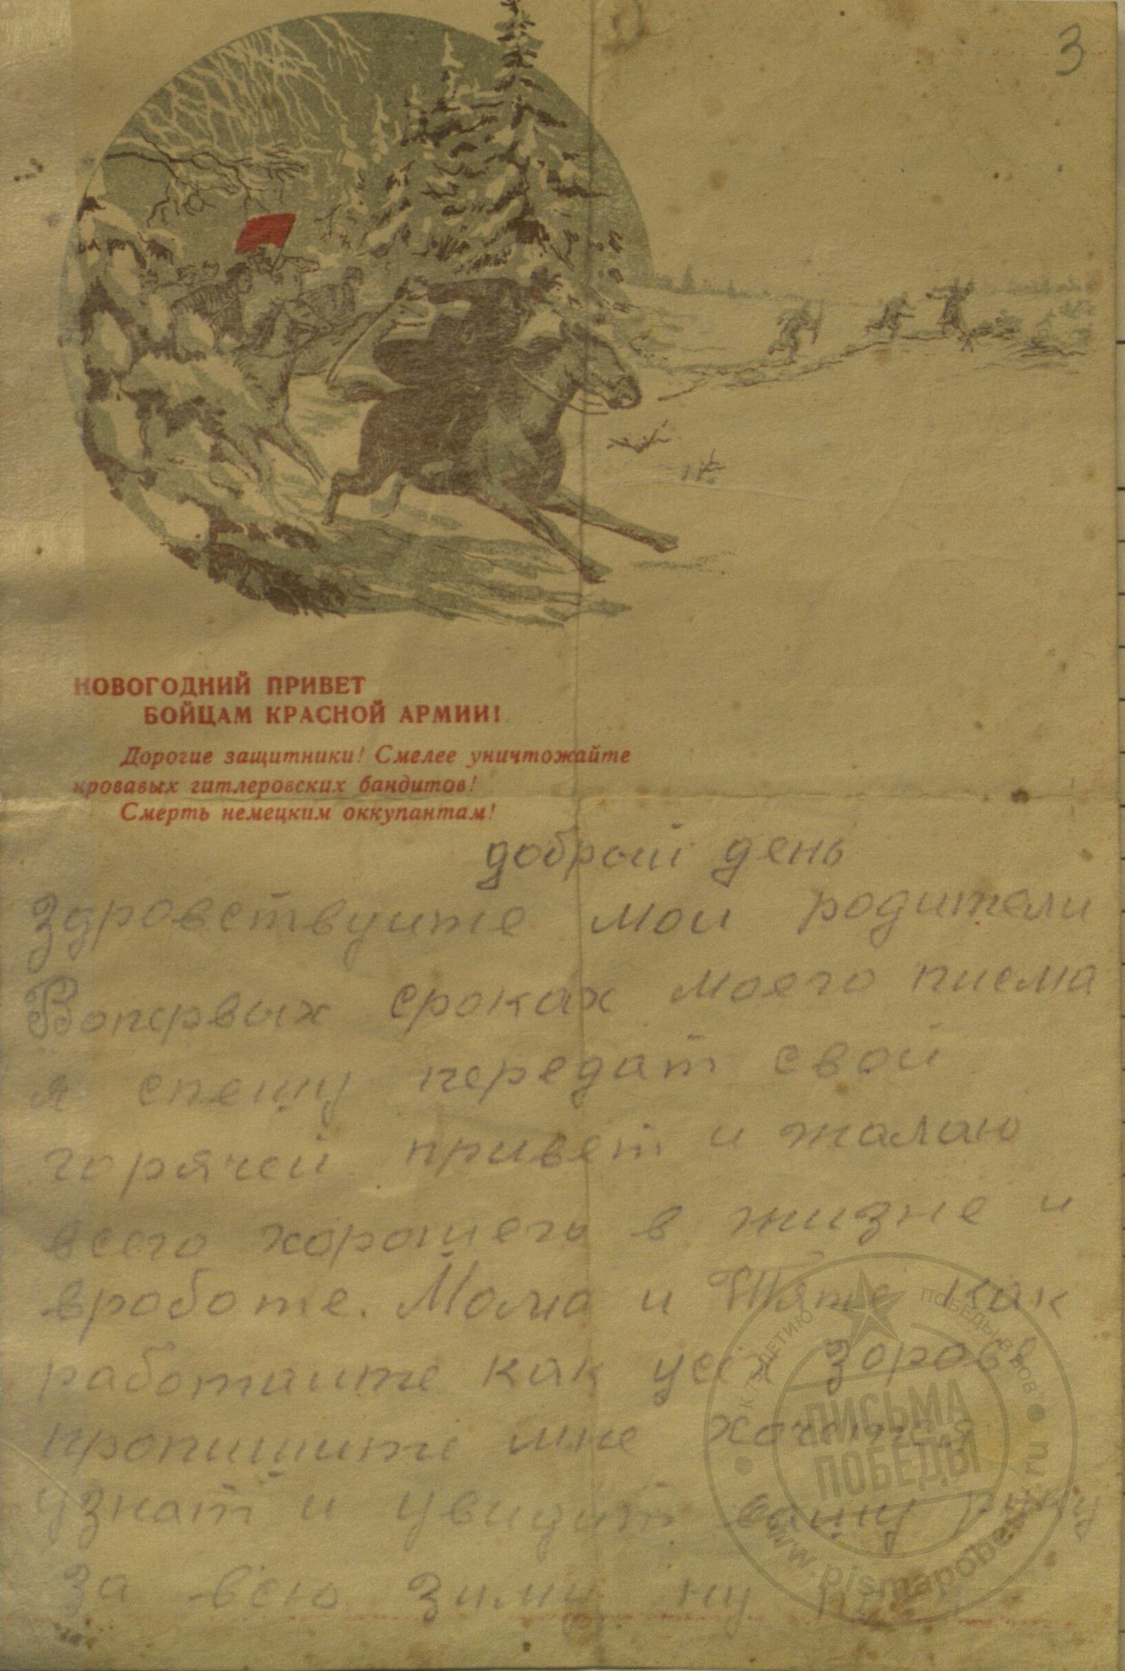 3
НОВОГОДНИЙ ПРИВЕТ
БОЙЦАМ КРАСНОЙ АРМИИ!
Дорогие защитники! Смелее уничтожайте
кровавых гитлеровских бандитов!
Смерть немецким оккупантам!
добрый день
Здровствуите мои родители
Вопервых сроках моего писма
я спешу передат свой
горячей привет и жалаю
всего хорошего в жизне и
вроботе. Мама и Тятя как
работаите как уся
пропишите мне хочется
узнат и увидит вашу руку
за всю зиму ну
К 75-ЛЕТИЮ ПОБЕДЫ В ВОВ
ПИСЬМА
ПОБЕДЫ
www.pismapobedy.ru